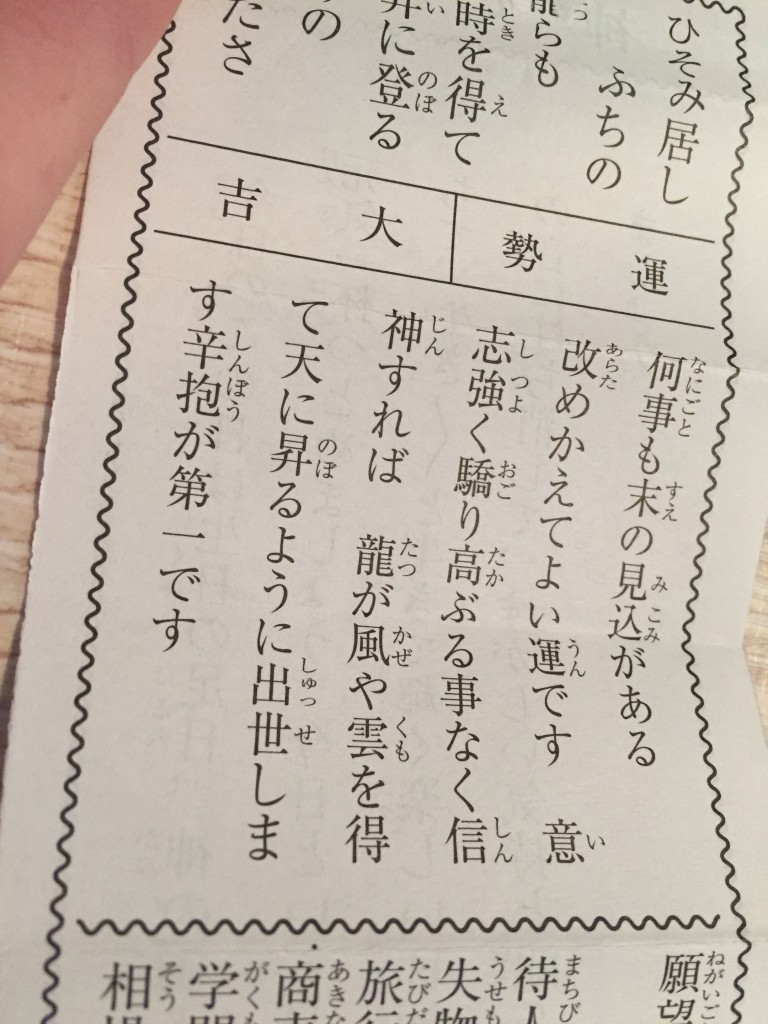 ひそみ居し
ふちの
龍らも
時を得て
昇に登る
の
ださ
運勢 大吉
何事も末の見込がある
改めかえてよい運です 意
志強く驕り高ぶる事なく信
神すれば 龍が風や雲を得
て天に昇るように出世しま
す辛抱が第一です
願望
待人
失物
旅行
商売
学問
相場